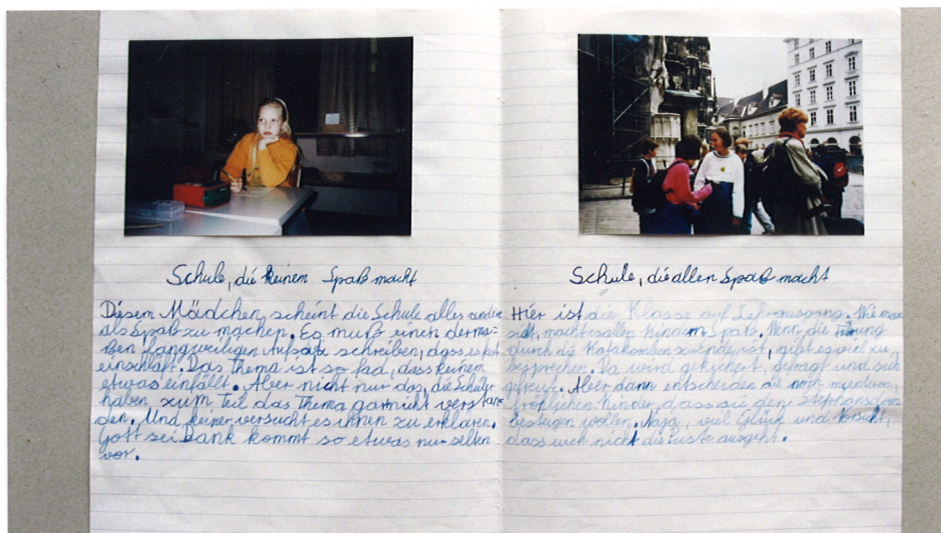 Schule, die keinem Spaß macht
Diesem Mädchen scheint die Schule alles andere
als Spaß zu machen. Es muß einen derma=
ßen langweiligen Aufsatz schreiben, dass es fast
einschläft. Das Thema ist so fad, dass keinem
etwas einfällt. Aber nicht nur das, die Schüler
haben zum Teil das Thema garnicht verstan
den. Und keiner versucht es ihnen zu erklären.
Gott sei Dank kommt so etwas nur selten
vor.
Schule, die allen Spaß macht
Hier ist die Klasse auf Lehrausgang. Wie man
sieht, macht es allen Kindern Spaß. Wenn die Führung
durch die Katakomben zu Ende ist, gibt es viel zu
besprechen. Da wird gekichert, gefragt und sich
gefreut. Aber dann entscheiden die noch munteren,
fröhlichen Kinder, dass sie den Stephansdom
besteigen wollen. Naja, viel Glück und Vorsicht,
dass euch nicht die Luft ausgeht.